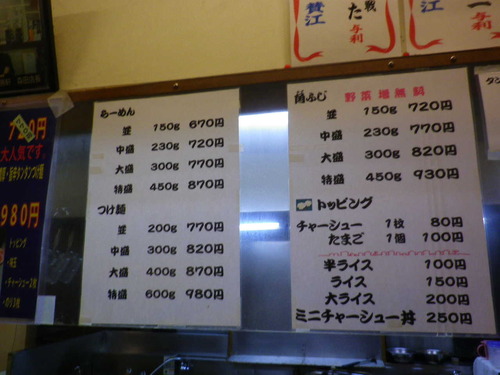 らーめん
並 150g 670円
中盛 230g 720円
大盛 300g 770円
特盛 450g 870円
つけ麺
並 200g 770円
中盛 300g 820円
大盛 400g 870円
特盛 600g 980円
蘭ふじ 野菜増無料
並 150g 720円
中盛 230g 770円
大盛 300g 820円
特盛 450g 930円
トッピング
チャーシュー 1枚 80円
たまご 1個 100円
半ライス 100円
ライス 150円
大ライス 200円
ミニチャーシュー丼 250円
大人気です。
980円
トッピング
・チャーシュー2枚
・のり3枚
贅江
戦
た
与利
江
一
与利
タン